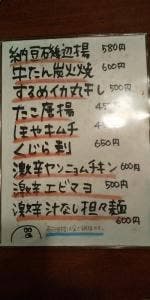 納豆磯辺揚 580円
牛たん炭火焼 600円
するめイカ丸干し 500円
たこ唐揚
ほやキムチ
くじら刺 650円
激辛ヤンニョムチキン 600円
激辛エビマヨ 500円
激辛汁なし担々麺 600円